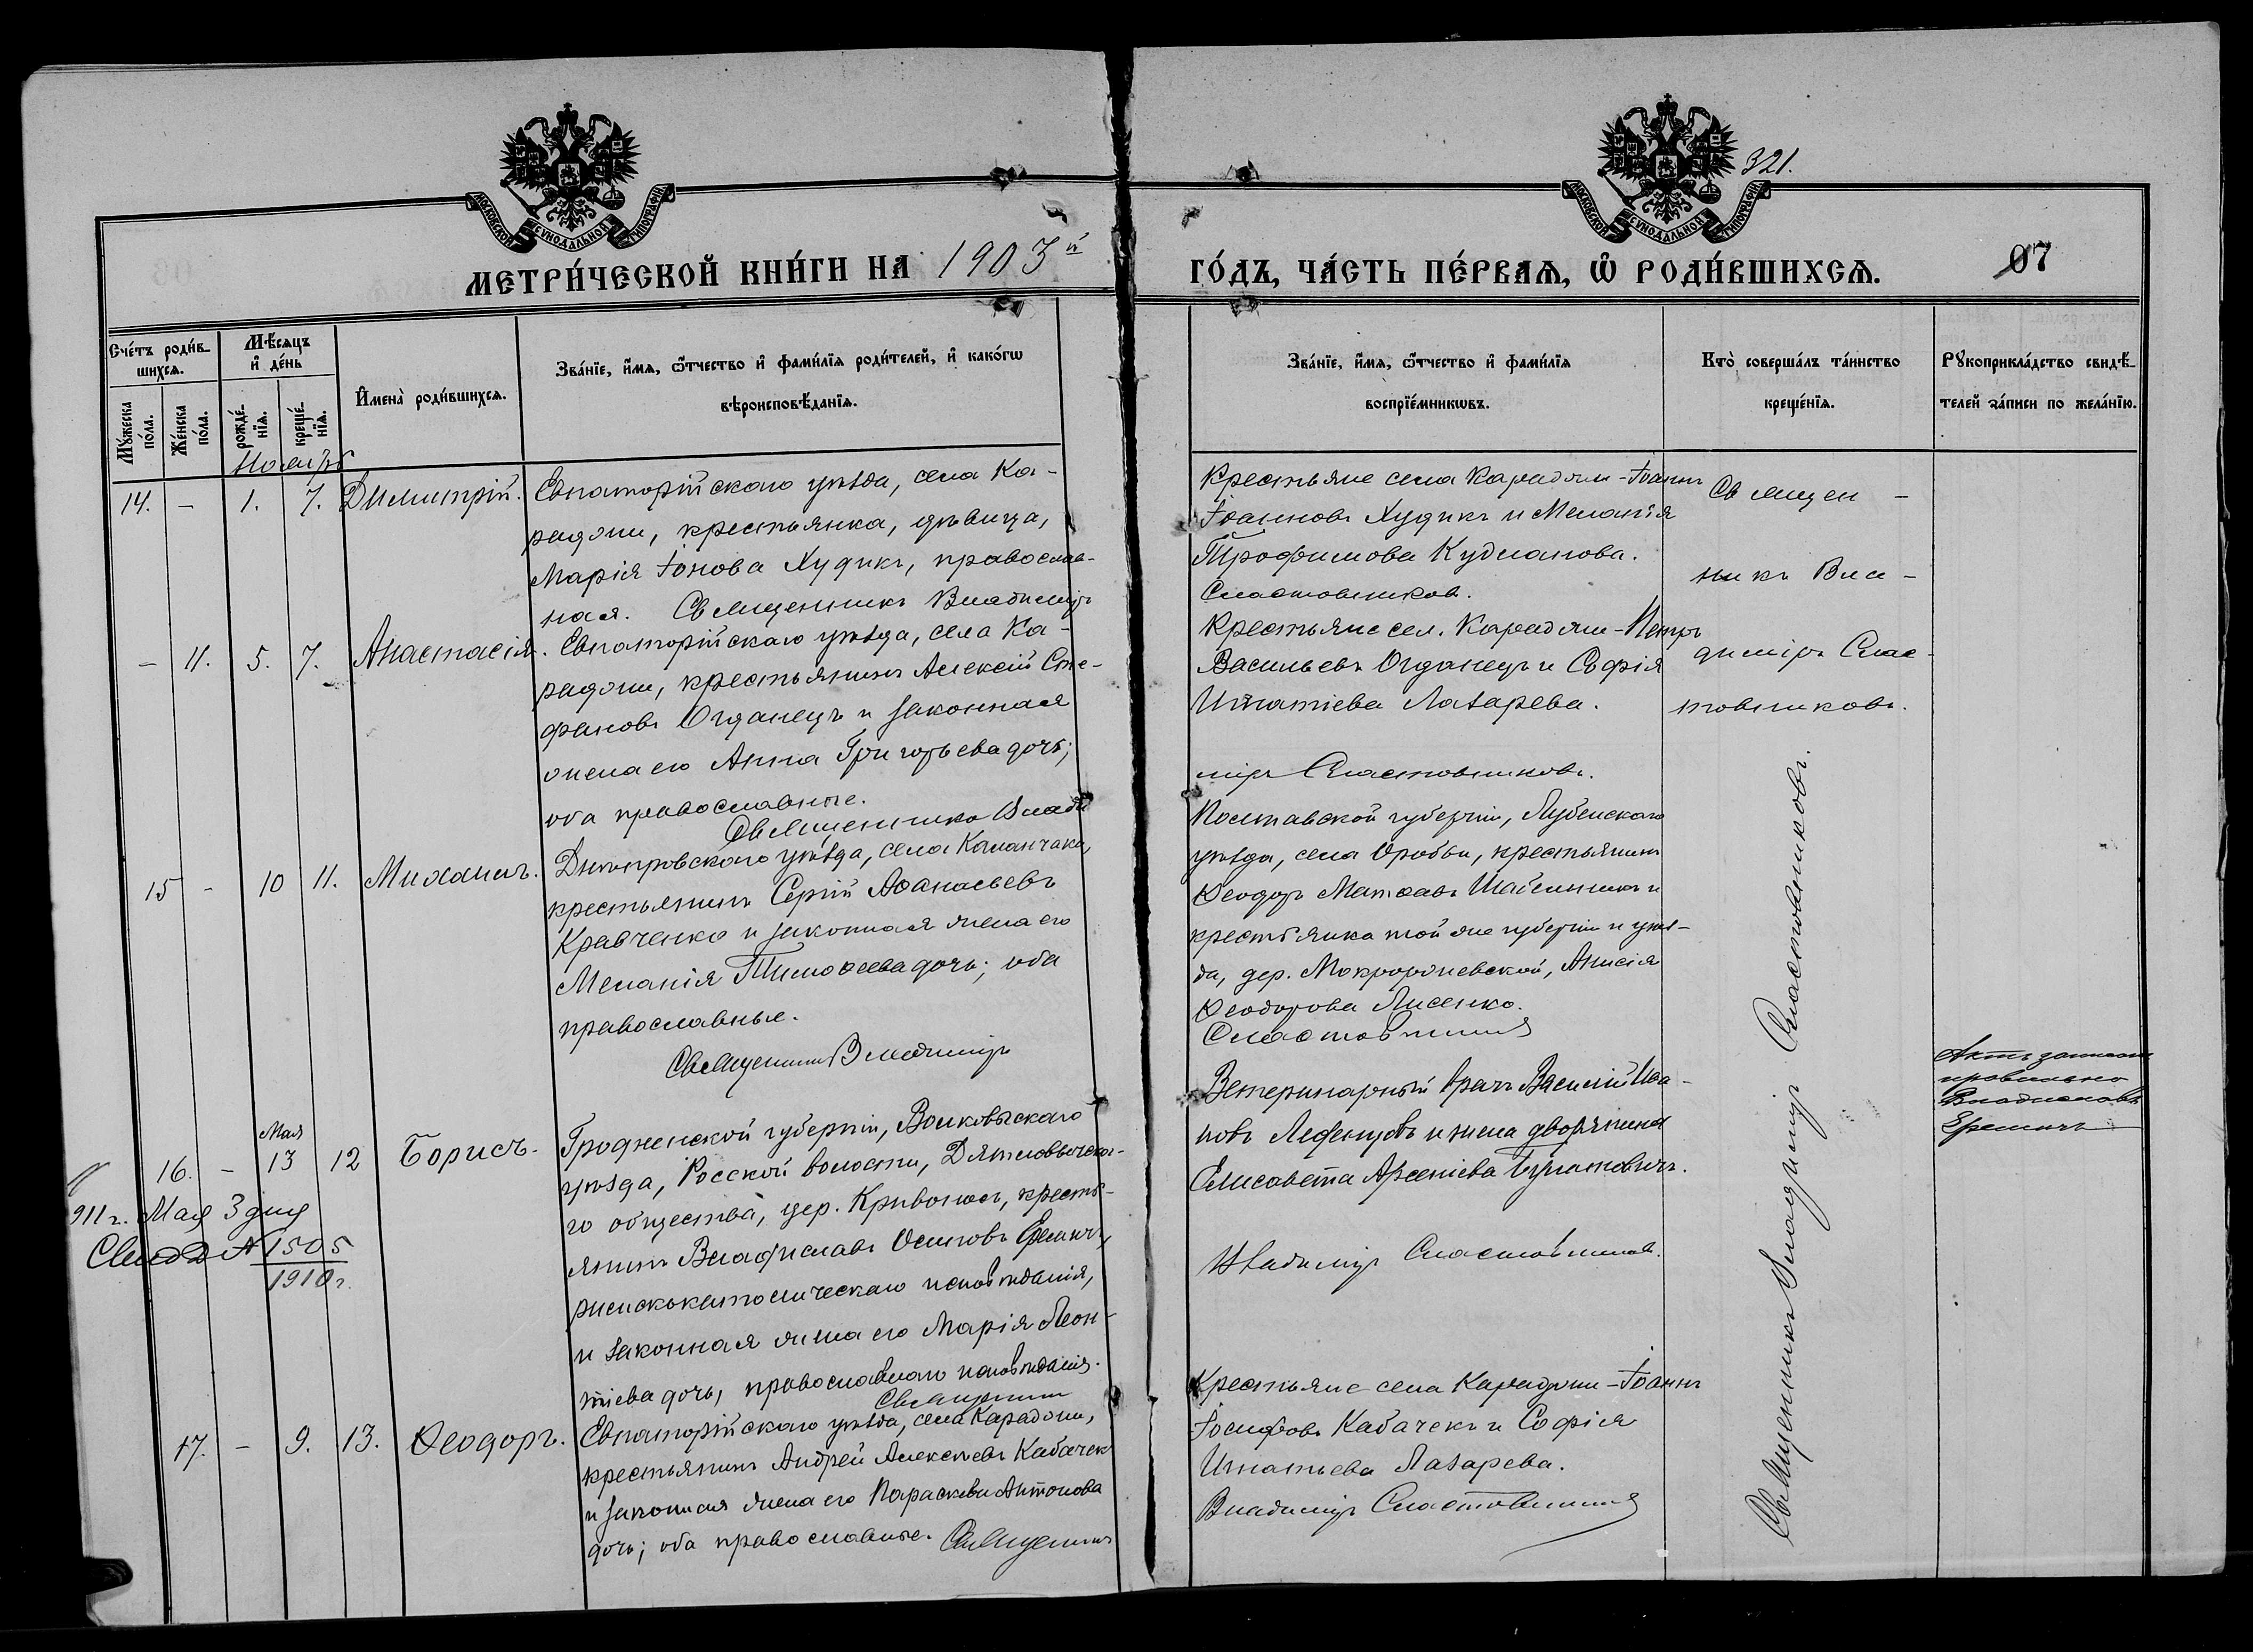 321.
МОСКОВСКОЙ СѴНОДАЛЬНОЙ ТИПОГРАФІИ
МОСКОВСКОЙ СѴНОДАЛЬНОЙ ТИПОГРАФІИ
МЕТРИ́ЧЕСКОЙ КНИ́ГИ НА 1903й
ГО́ДЪ, ЧА́СТЬ ПЕ́РВАѦ, Ѽ РОДИ́ВШИХСѦ.
07
Сче́тъ роди́в-
шихсѧ.
Мѣ́сѧцъ
и҆ де́нь
Мꙋ́жеска
по́ла.
Же́нска
по́ла.
рожде́-
нїѧ.
креще́-
нїѧ.
И҆мена̀ роди́вшихсѧ.
Зва́нїе, и҆́мѧ, ѻ҆́тчество и҆ фами́лїѧ роди́телей, и҆ како́гѡ
вѣроисповѣ́данїѧ.
Зва́нїе, и҆́мѧ, ѻ҆́тчество и҆ фами́лїѧ
воспрїе́мникѡвъ.
Кто̀ соверша́лъ та́инство
креще́нїѧ.
Рꙋкоприкла́дство свидѣ́-
телей за́писи по жела́нїю.
Ноябрь
14. - 1. 7. Димитрій.
Евпаторійскаго уѣзда, села Ка-
раджи, крестьянка, дѣвица,
Марія Іонова Худикъ, православ-
ная. Священникъ Владиміръ
Крестьяне села Караджи - Іоаннъ
Іоанновъ Худикъ и Меланія
Трофимова Кудланова.
Сластовниковъ.
- 11. 5. 7. Анастасія.
Евпаторійскаго уѣзда, села Ка-
раджи, крестьянинъ Алексій Сте-
фановъ Огданецъ и законная
жена его Анна Григорьева дочь;
оба православные.
Священникъ Влади
Крестьяне сел. Караджи - Петръ
Васильевъ Огданецъ и Софія
Игнатіева Лазарева.
міръ Сластовниковъ.
Священ-
никъ Вла-
диміръ Слас-
товниковъ.
15 - 10 11. Михаилъ.
Днѣпровскаго уѣзда, села Каланчака,
крестьянинъ Сергій Аѳанасьевъ
Кравченко и законная жена его
Меланія Тимоѳеева дочь; оба
православные.
Священникъ Владиміръ
Полтавской губерніи, Лубенскаго
уѣзда, села
крестьянинъ
Ѳеодоръ Матѳевъ
и
крестьянка той же губерніи и уѣз-
да, дер.
Анисія
Ѳеодорова Лисенко.
Мая
16. - 13 12 Борисъ.
Гродненской губерніи, Волковыскаго
уѣзда, Росской волости, Дятловическа-
го общества, дер.
кресть-
янинъ Владиславъ Осиповъ Еремичъ,
римскокатолическаго исповѣданія,
и законная жена его Марія Леон-
тіева дочь, православнаго исповѣданія.
Священникъ
Ветеринарный врачъ Василій Ива-
новъ
и жена дворянина
Елисавета Арсеніева
Владиміръ Сластовниковъ.
Актъ записанъ
правильно
Владиславъ
Еремичъ
911 г. Мая 3 дня
№ 1505
1910 г.
17. - 9. 13. Ѳеодоръ.
Евпаторійскаго уѣзда, села Караджи,
крестьянинъ Андрей Алексѣевъ Кабачекъ
и законная жена его Параскева Антонова
дочь; оба православные. Священникъ
Крестьяне села Караджи - Іоаннъ
Іосифовъ Кабачекъ и Софія
Игнатьева Лазарева.
Владиміръ Сластовниковъ
Священникъ Владиміръ Сластовниковъ.